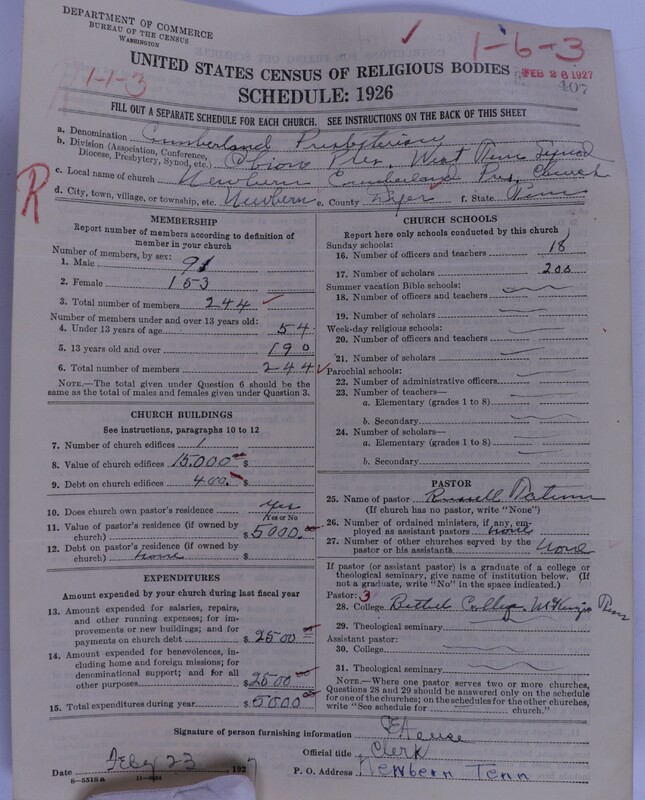 DEPARTMENT OF COMMERCE
BUREAU OF THE CENSUS
WASHINGTON
1-6-3
1-1-3
UNITED STATES CENSUS OF RELIGIOUS BODIES
FEB 26 1927
407
SCHEDULE: 1926
FILL OUT A SEPARATE SCHEDULE FOR EACH CHURCH. SEE INSTRUCTIONS ON THE BACK OF THIS SHEET
R
a. Denomination Cumberland Presbyterian
b. Division (Association, Conference, Diocese, Presbytery, Synod, etc.) Obion Pres. West Tenn Synod
c. Local name of church Newbern Cumberland Pres. Church
d. City, town, village, or township, etc. Newbern e. County Dyer f. State Tenn
MEMBERSHIP
Report number of members according to definition of
member in your church
Number of members, by sex:
1. Male 91
2. Female 153
3. Total number of members 244
Number of members under and over 13 years old:
4. Under 13 years of age 54
5. 13 years old and over 190
6. Total number of members 244
NOTE.—The total given under Question 6 should be
same as the total of males and females given under Question 3.
CHURCH BUILDINGS
See instructions, paragraphs 10 to 12
7. Number of church edifices 1
8. Value of church edifices 15.000 $
9. Debt on church edifices 400. $
10. Does church own pastor's residence? yes
Yes or No
11. Value of pastor's residence (if owned by
church) $ 5000.
12. Debt on pastor's residence (if owned by
church) none $
EXPENDITURES
Amount expended by your church during last fiscal year
13. Amount expended for salaries, repairs,
and other running expenses; for im-
provements or new buildings; and for
payments on church debt $ 2500
14. Amount expended for benevolences, in-
cluding home and foreign missions; for
denominational support; and for all
other purposes $ 2500
15. Total expenditures during year $ 5000
CHURCH SCHOOLS
Report here only schools conducted by this church
Sunday schools:
16. Number of officers and teachers 18
17. Number of scholars 200
Summer vacation Bible schools:
18. Number of officers and teachers
19. Number of scholars
Week-day religious schools:
20. Number of officers and teachers
21. Number of scholars
Parochial schools:
22. Number of administrative officers
23. Number of teachers—
a. Elementary (grades 1 to 8)
b. Secondary
24. Number of scholars—
a. Elementary (grades 1 to 8)
b. Secondary
PASTOR
25. Name of pastor Russell
(If church has no pastor, write "None")
26. Number of ordained ministers, if any, em-
ployed as assistant pastors none
27. Number of other churches served by the
pastor or his assistants none
If pastor (or assistant pastor) is a graduate of a college or
theological seminary, give name of institution below. (If
not a graduate, write "No" in the space indicated.)
Pastor: 3
28. College Bethel College McKenzie Tenn
29. Theological seminary
Assistant pastor:
30. College
31. Theological seminary
NOTE.—Where one pastor serves two or more churches,
Questions 28 and 29 should be answered only on the schedule
for one of the churches; on the schedules for the other churches,
write "See schedule for church."
Signature of person furnishing information
Official title Clerk
Date Feby 23, 1927
P. O. Address Newbern Tenn
8-5518a